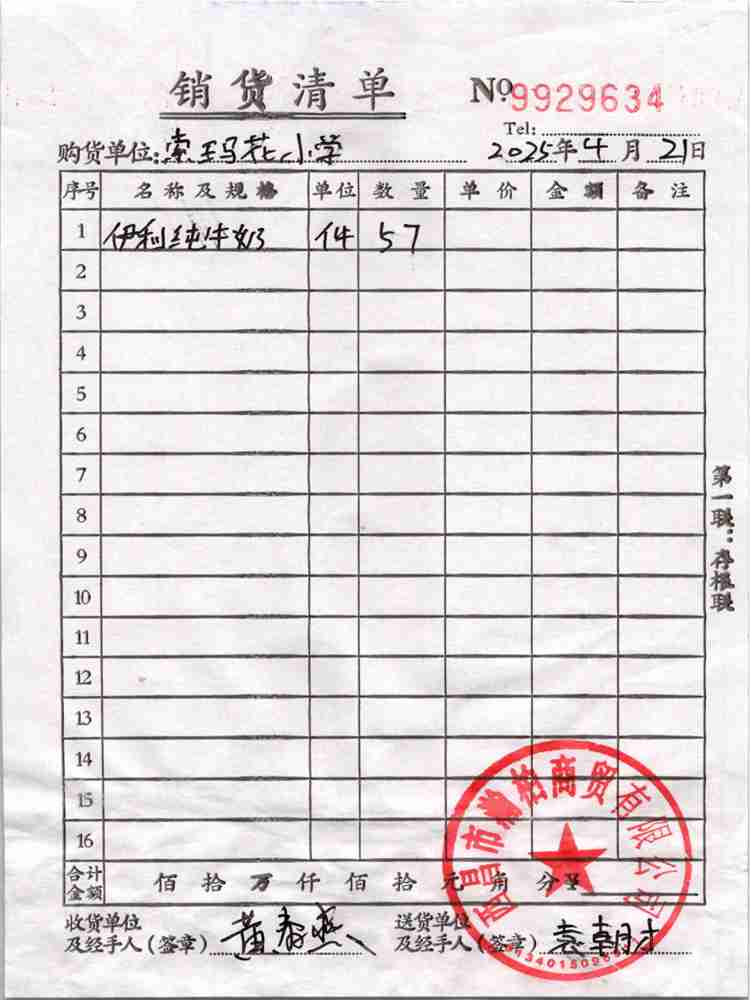 销货清单
№9929634
Tel:
购货单位:索玛花小学 2025年4月21日
序号 名称及规格 单位 数量 单价 金额 备注
1 伊利纯牛奶 件 57
2
3
4
5
6
7
8
9
10
11
12
13
14
15
16
合计金额 佰拾万仟佰拾元角分¥
收货单位及经手人(签章) 黄
送货单位及经手人(签章) 袁朝才
第一联:存根联
西昌市 柏商贸有限公司